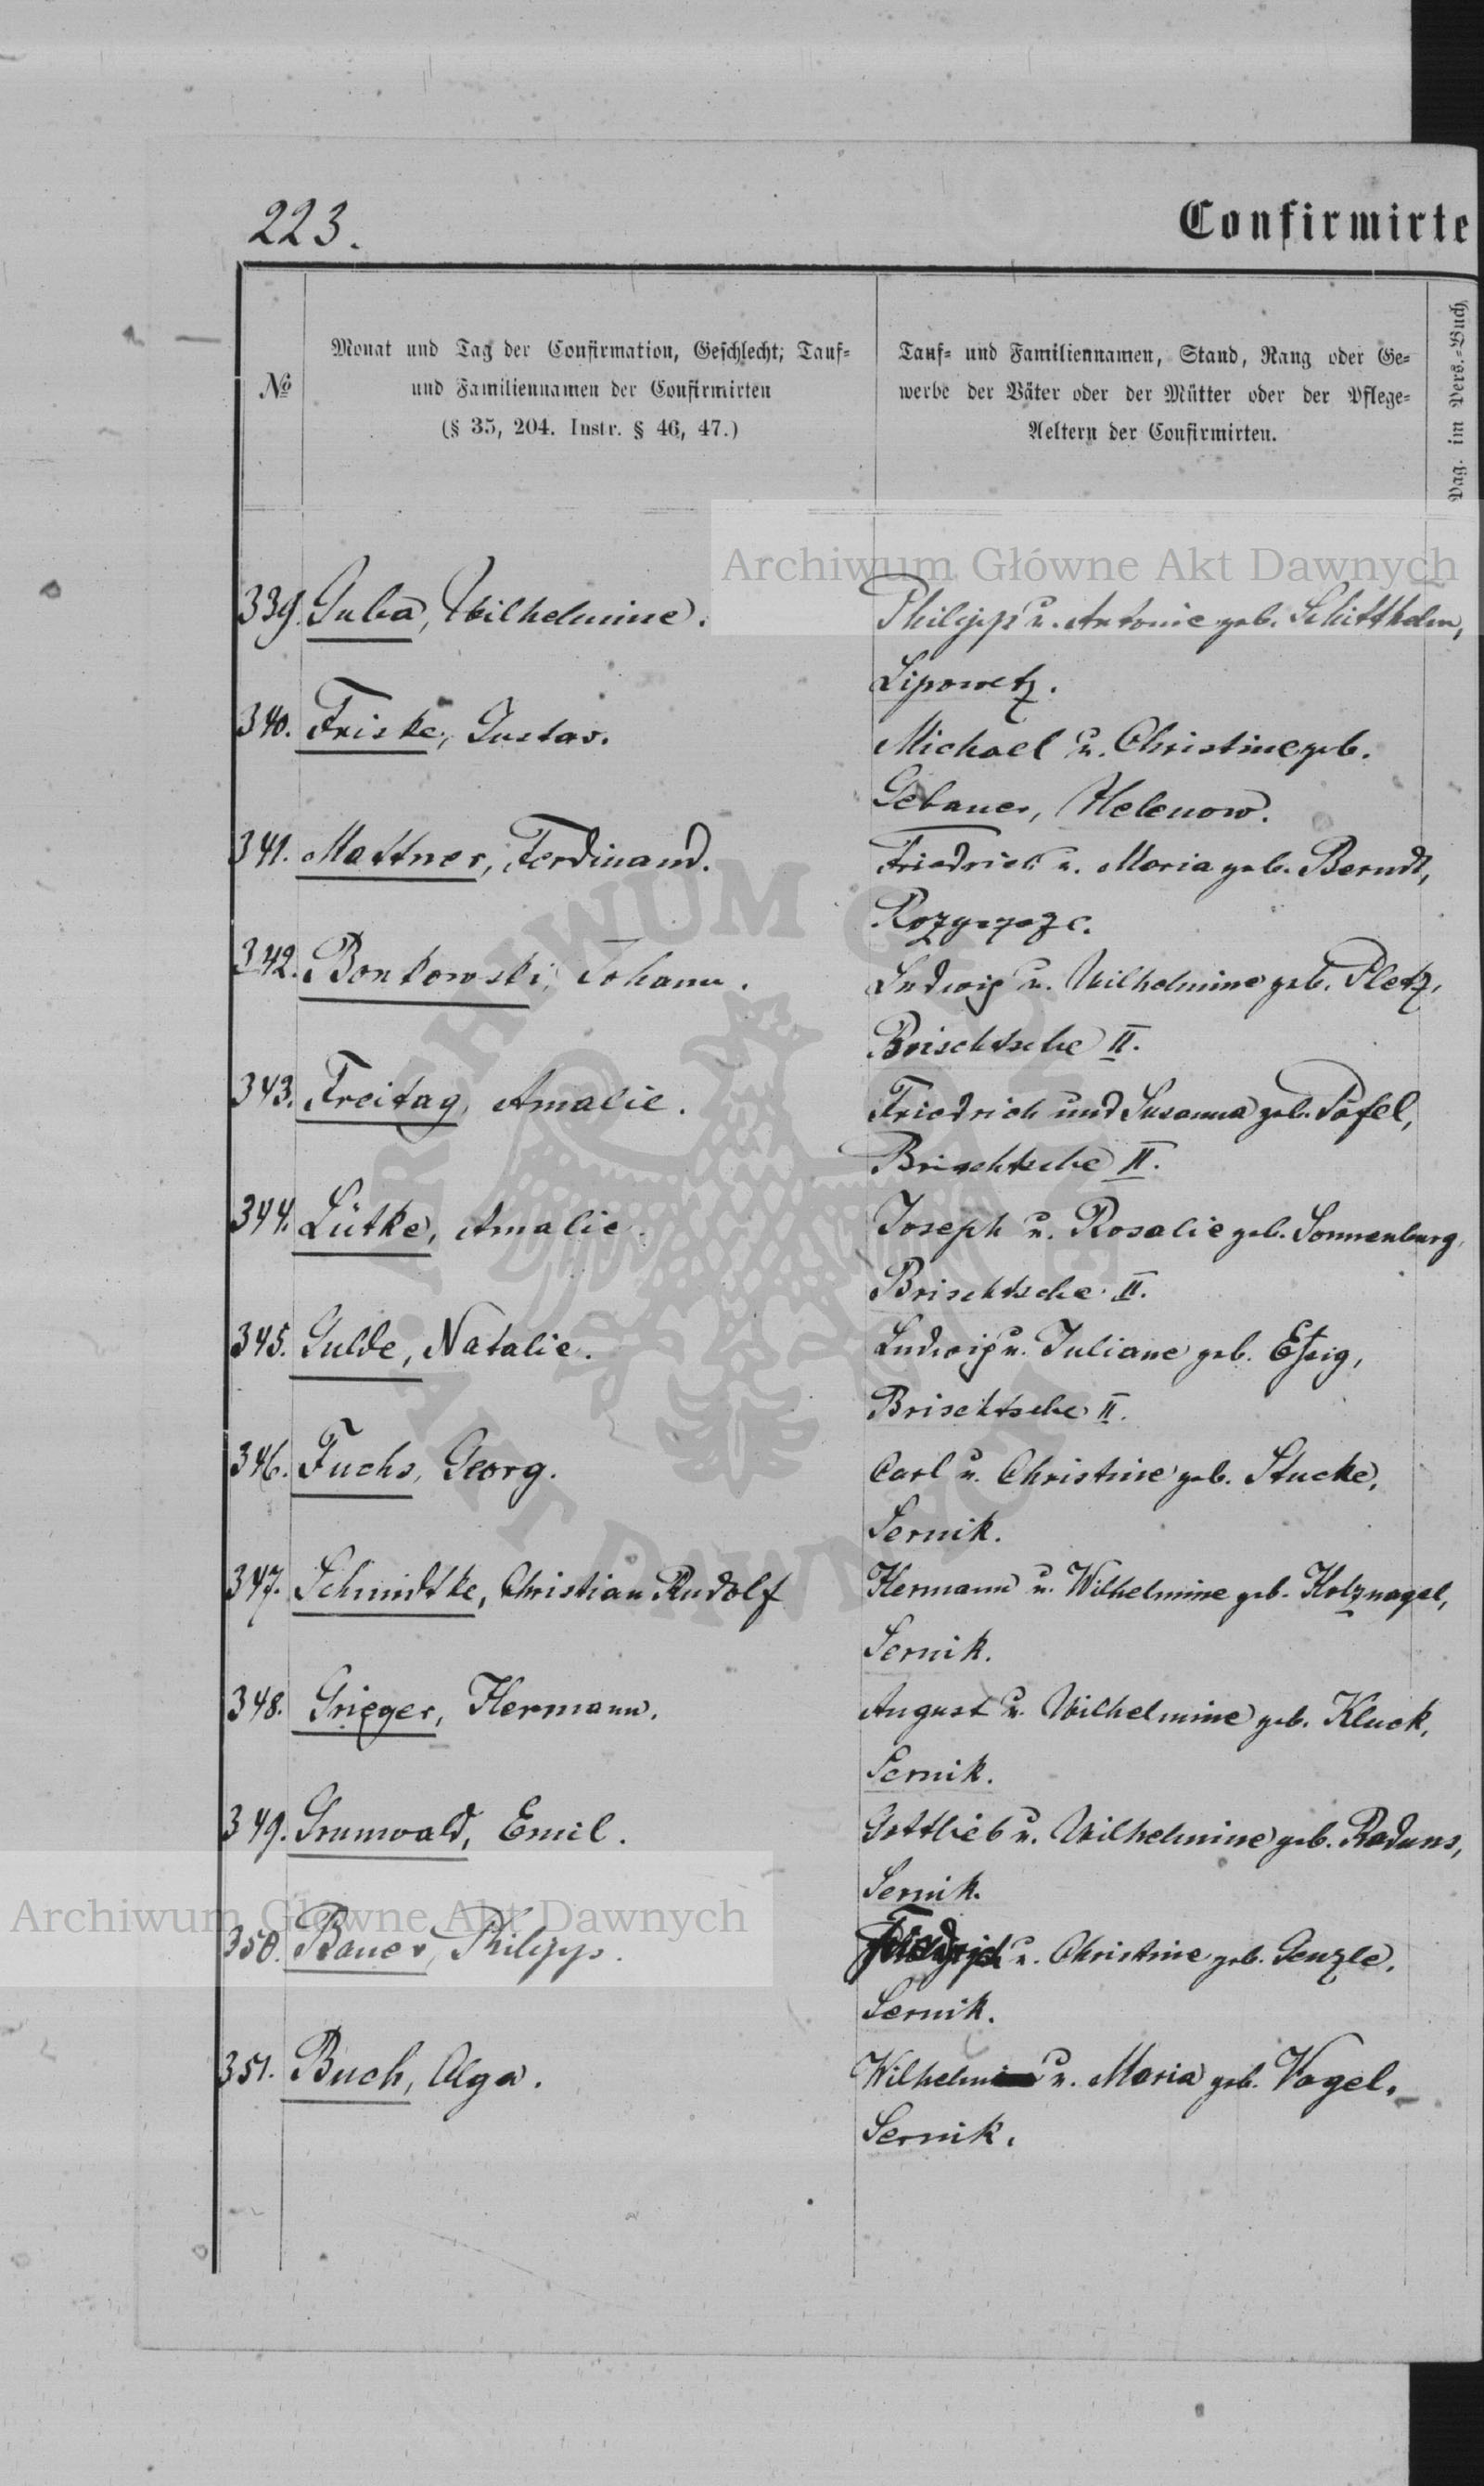 223.
Confirmirte
№
Monat und Tag der Confirmation, Geschlecht; Tauf=
und Familiennamen der Confirmirten
(§ 35, 204. Instr. § 46, 47.)
Tauf= und Familiennamen, Stand, Rang oder Ge=
werbe der Väter oder der Mütter oder der Pflege=
Aeltern der Confirmirten.
Pag. im Pers.=Buch
Archiwum Główne Akt Dawnych
339. Guba, Wilhelmine.
Philipp u. Antonie geb. Schitthelm,
Lipowetz.
340. Friske, Gustav.
Michael u. Christine geb.
Gebauer, Helenow.
341. Mattner, Ferdinand.
Friedrich u. Maria geb. Berndt,
342. Bonkowski, Johann.
Ludwig u. Wilhelmine geb. Pletz,
Brischtsche II.
343. Freitag, Amalie.
Friedrich und Susanna geb. Pofel,
Brischtsche II.
344. Lütke, Amalie.
Joseph u. Rosalie geb. Sonnenburg,
Brischtsche II.
345. Gulde, Natalie.
Ludwig u. Juliane geb. Eßig,
Brischtsche II.
346. Fuchs, Georg.
Carl u. Christine geb. Stucke,
Sernik.
347. Schmidtke, Christian Rudolf
Hermann u. Wilhelmine geb. Holznagel,
Sernik.
348. Grieger, Hermann.
August u. Wilhelmine geb. Kluck,
Sernik.
349. Grunwald, Emil.
Gottlieb u. Wilhelmine geb. Raduns,
Sernik.
Archiwum Główne Akt Dawnych
350. Bauer, Philipp.
Friedrich u. Christine geb. Genzle,
Sernik.
351. Buch, Olga.
Wilhelm u. Maria geb. Vogel,
Sernik.
ARCHIWUM GŁÓWNE AKT DAWNYCH